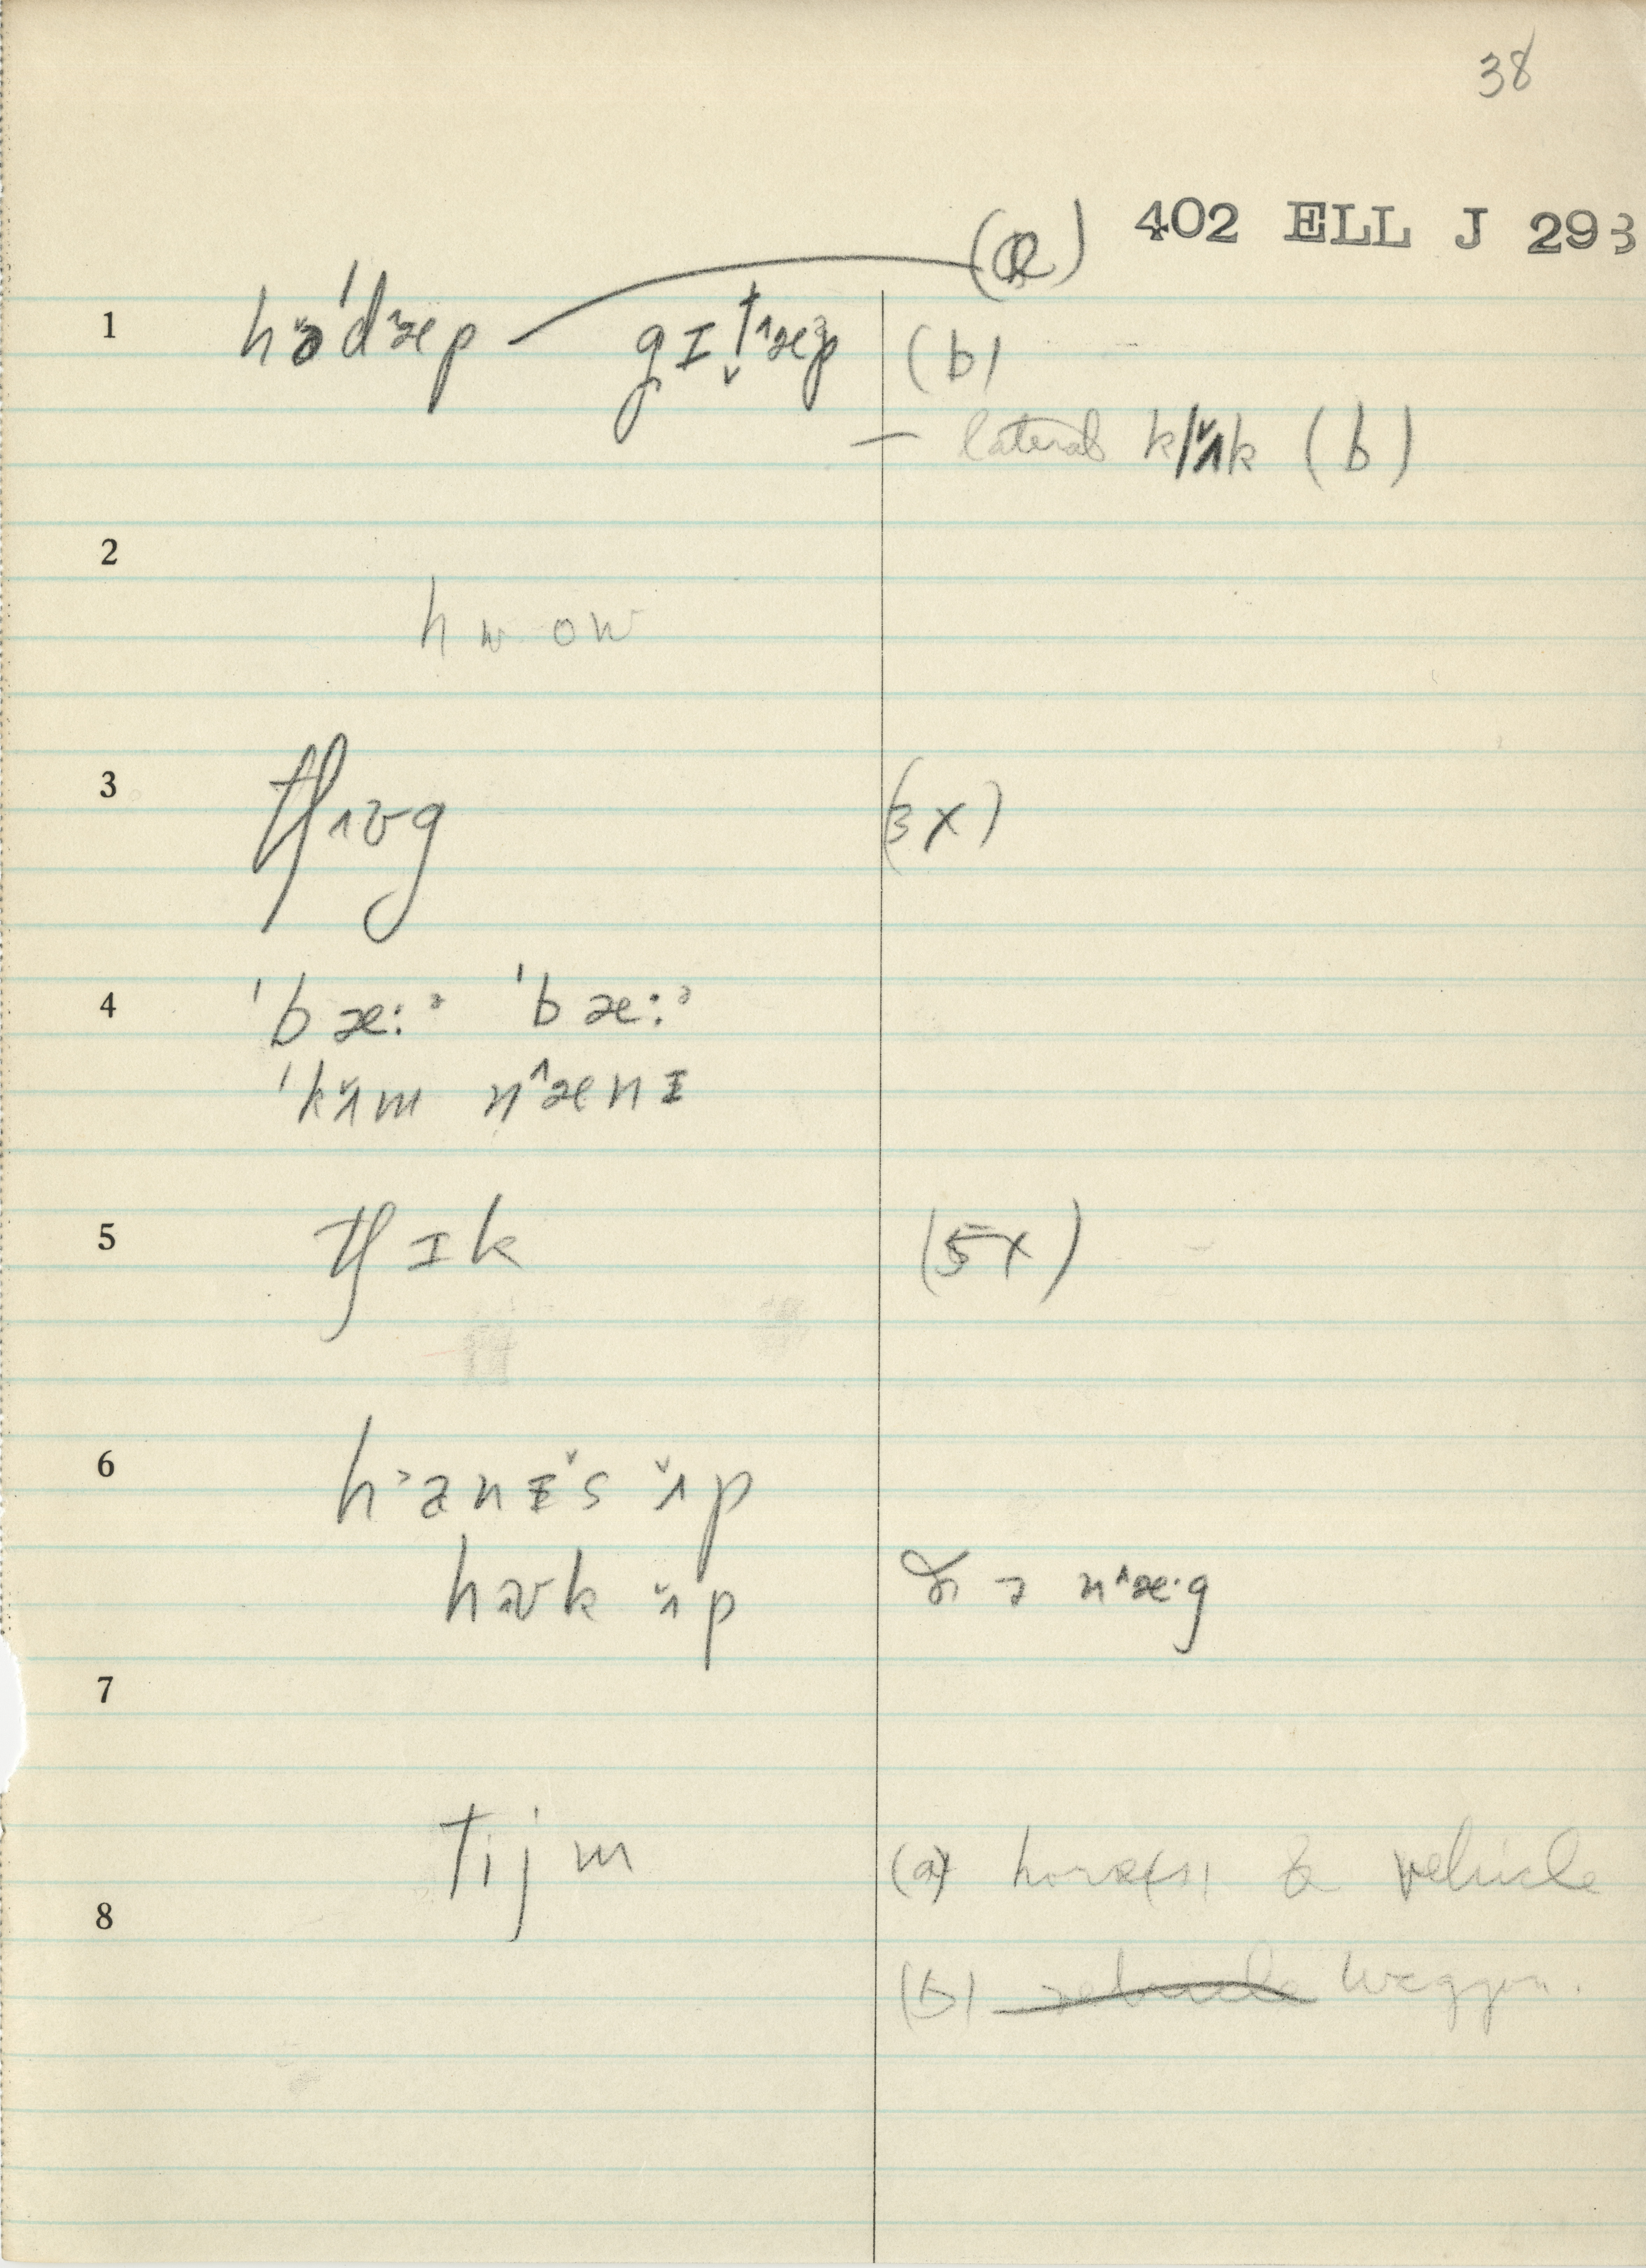 38
402 ELL J 293
1 hə̆ˈdæp gɪt̬ˈæp (a)
(b)
— lateral klʌ̆k (b)
2
hw ow
3 tʃʌʊg (3x)
4 ˈbæ:ᵊ ˈbæ:ᵊ
ˈkʌ̆m nᶺænɪ
5 tʃɪk (5x)
6 hᵓanɪ̆s ʌ̆p
hʊk ʌ̆p ə nᶺæ·g
7
tijm (a) horse(s) & vehicle
8
(b) vehicle waggon.